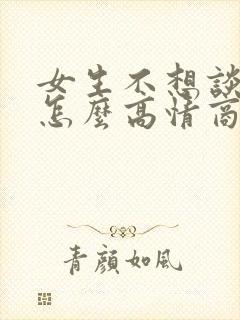 女生不想談
怎麼高情商
青顏如風